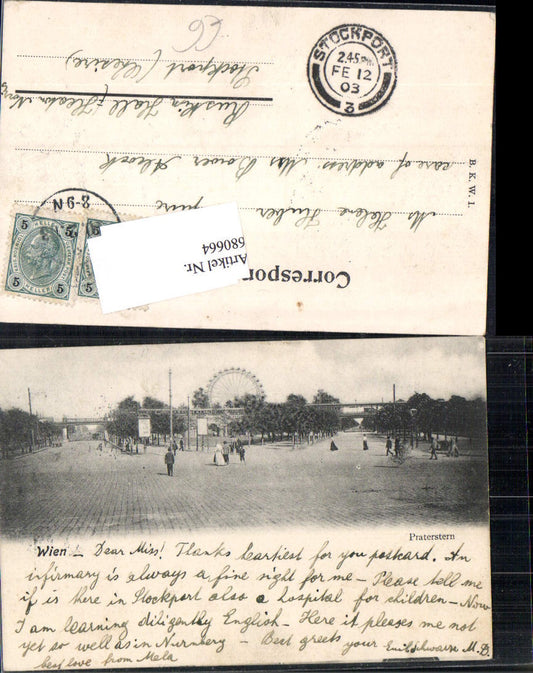 Correspon
Artikel Nr.
680664
Ms Helene Huber
care of address: Mrs Bower Alcock
Ruskin Hall, Heaton Norris
Stockport (Chesire)
STOCKPORT
2.45PM
FE 12
03
3
B. K. W. I.
5 5
HELLER
5 5
5
5
8-9N
Praterstern
Wien – Dear Miss! Thanks heartiest for you postcard. An
infirmary is always a fine sight for me – Please tell me
if is there in Stockport also a hospital for children – Now
I am learning diligently English – Here it pleases me not
yet so well as in Nurnberg – Best greets your Emil Schwarz M.D.
best love from Mela